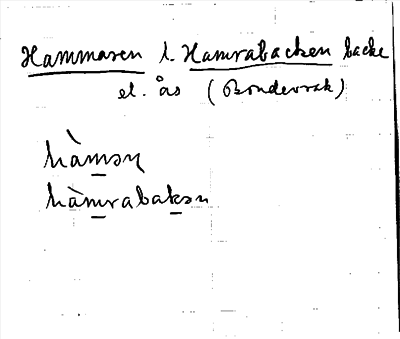 Hammaren l. Hamrabacken backe
el. ås (Bondevrak)
hàmən
hàmrabakən